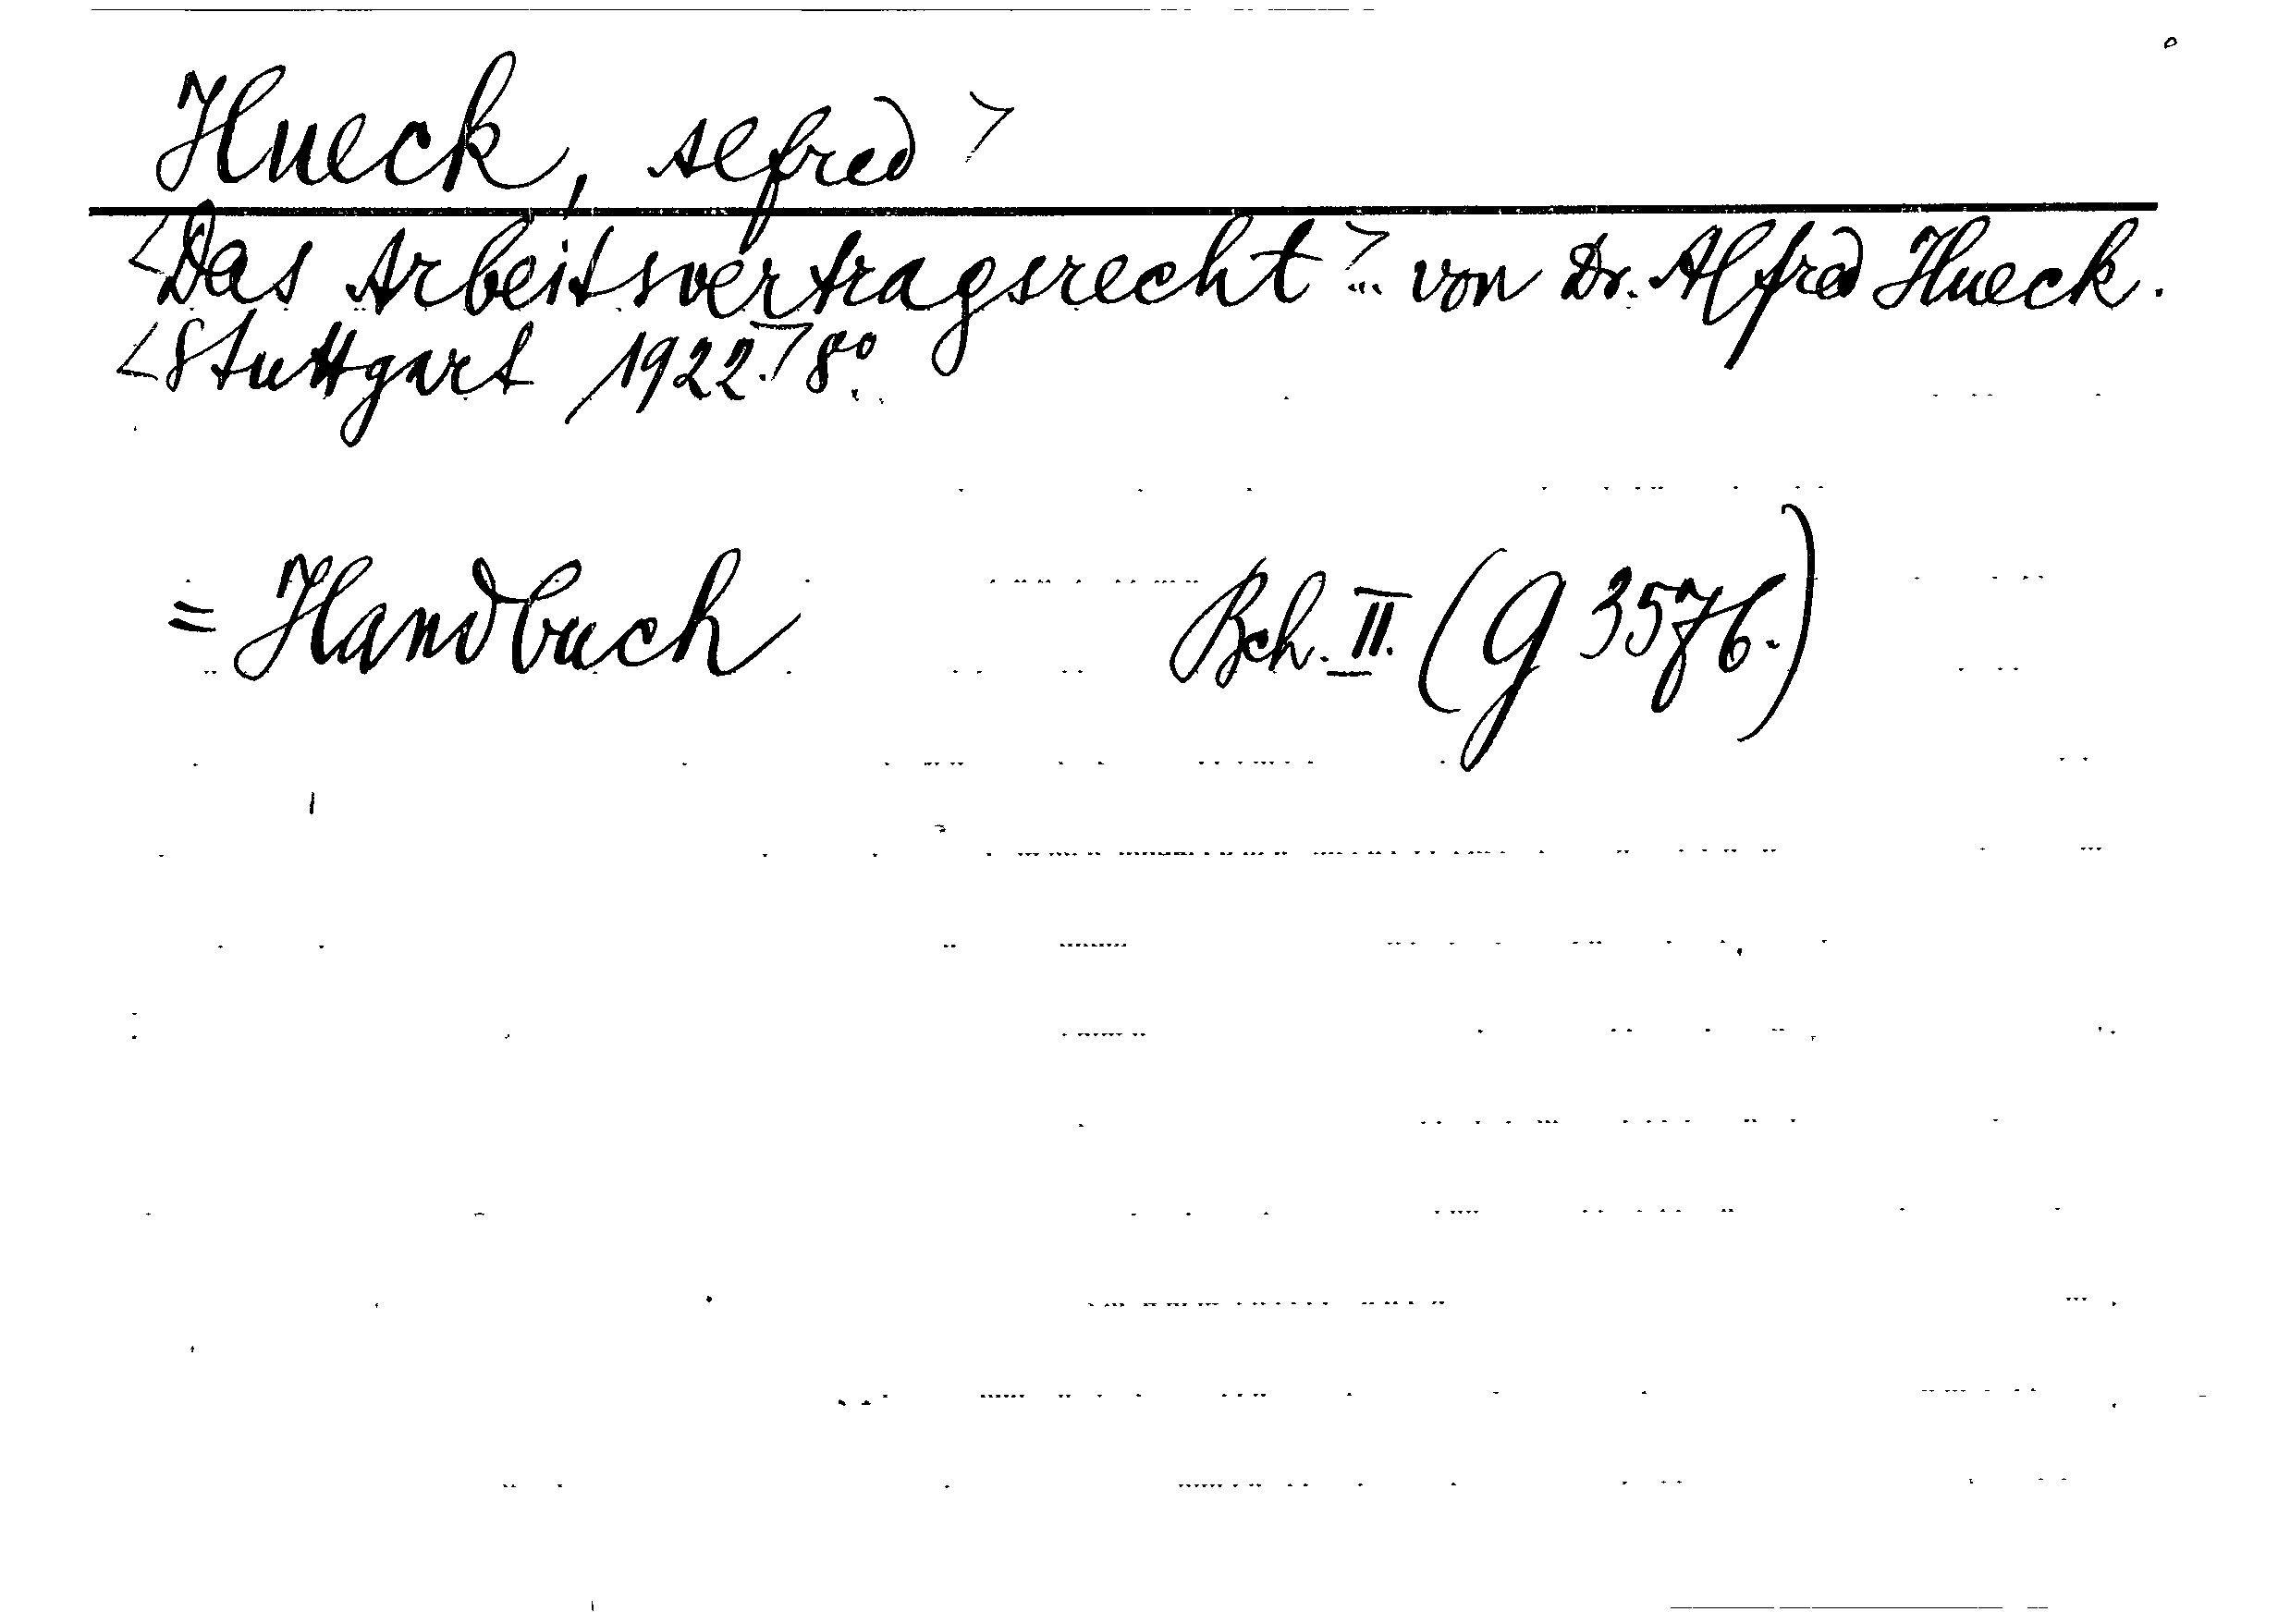 Hueck, Alfred >
<Das Arbeitsvertragsrecht> ... von Dr. Alfred Hueck.
<Stuttgart 1922.> 8°.
= Handbuch Bch. II. (G 3576.)